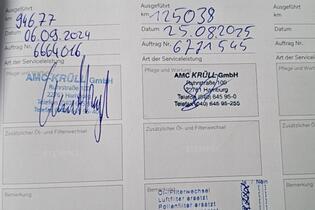 Ausgeführt
km 94677
Datum 06.09.2024
Auftrag Nr. 6664016
Art der Serviceleistung
Pflege und Wartung
AMC KRÜLL GmbH
Ruhrstraße 100
22761 Hamburg
Zusätzlicher Öl- und Filterwechsel
Bemerkung
Ausgeführt
km 125038
Datum 25.08.2025
Auftrag Nr. 6771545
Art der Serviceleistung
Pflege und Wartung
AMC KRÜLL GmbH
Ruhrstraße 100
22761 Hamburg
Telefon (040) 645 95-0
Telefax (040) 645 95-255
Zusätzlicher Öl- und Filterwechsel
Bemerkung
Öl-/Filterwechsel
Luftfilter ersetzt
Pollenfilter ersetzt